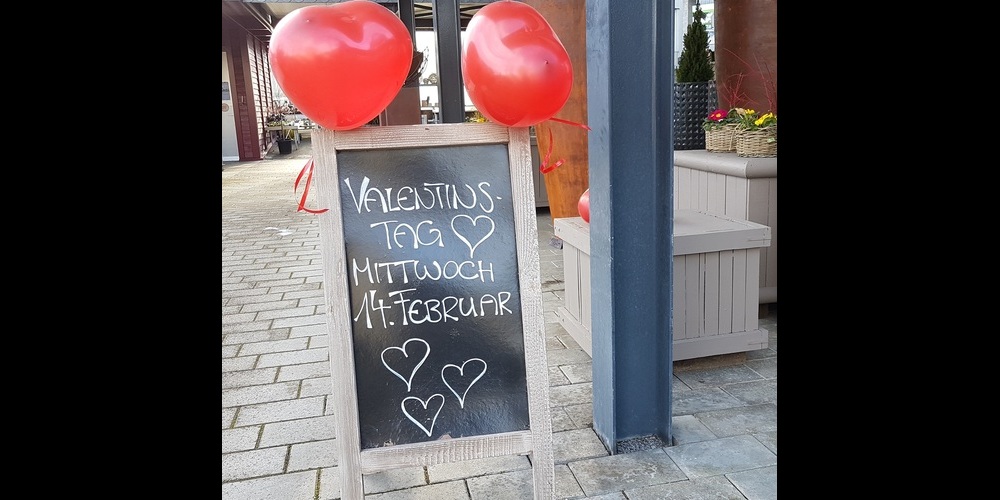 VALENTINS-
TAG
MITTWOCH
14. FEBRUAR